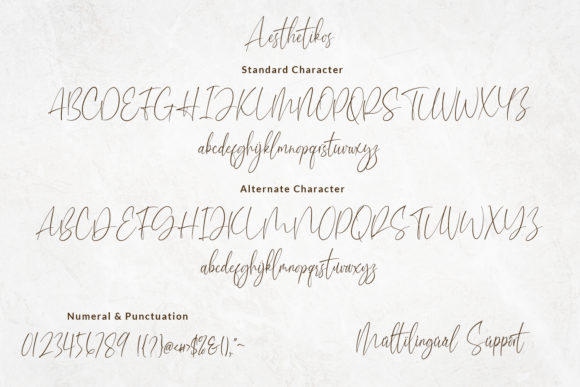 Aesthetikos
Standard Character
ABCDEFGHIJKLMNOPQRSTUVWXYZ
abcdefghijklmnopqrstuvwxyz
Alternate Character
ABCDEFGHIJKLMNOPQRSTUVWXYZ
abcdefghijklmnopqrstuvwxyz
Numeral & Punctuation
0123456789
Multilingual Support